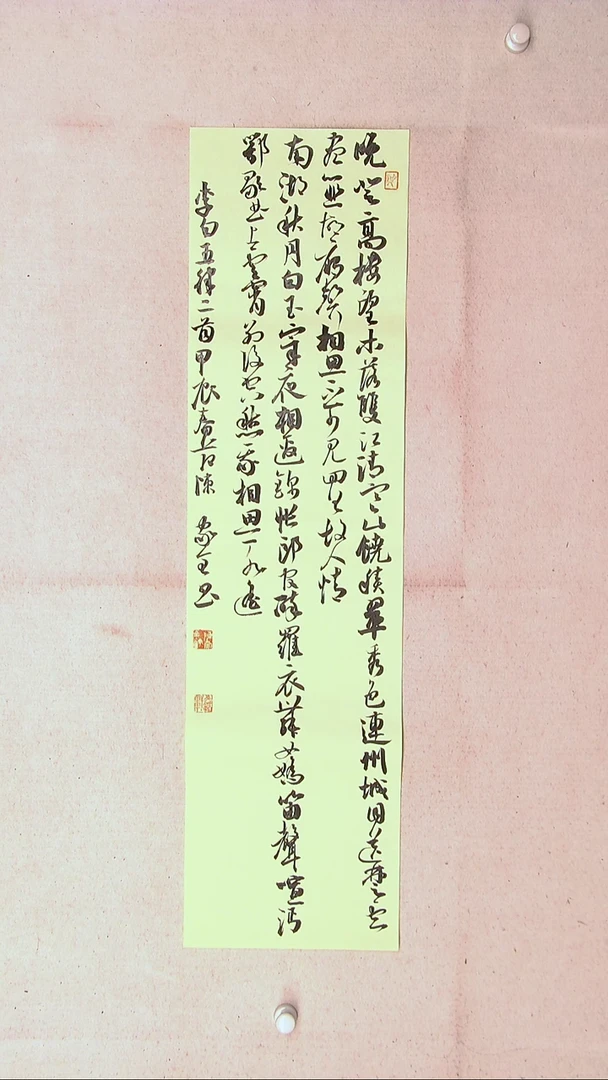 晚登高樓望木落雙江清寒山饒積翠秀色連州城目送楚雲
盡悲胡雁聲相思不可見回首故人情
南湖秋月白王宰夜相邀錦帳郎官醉羅衣舞女嬌笛聲喧沔
鄂歌曲上雲霄別後空愁我相思一水遙
李白五律二首甲辰春陳書